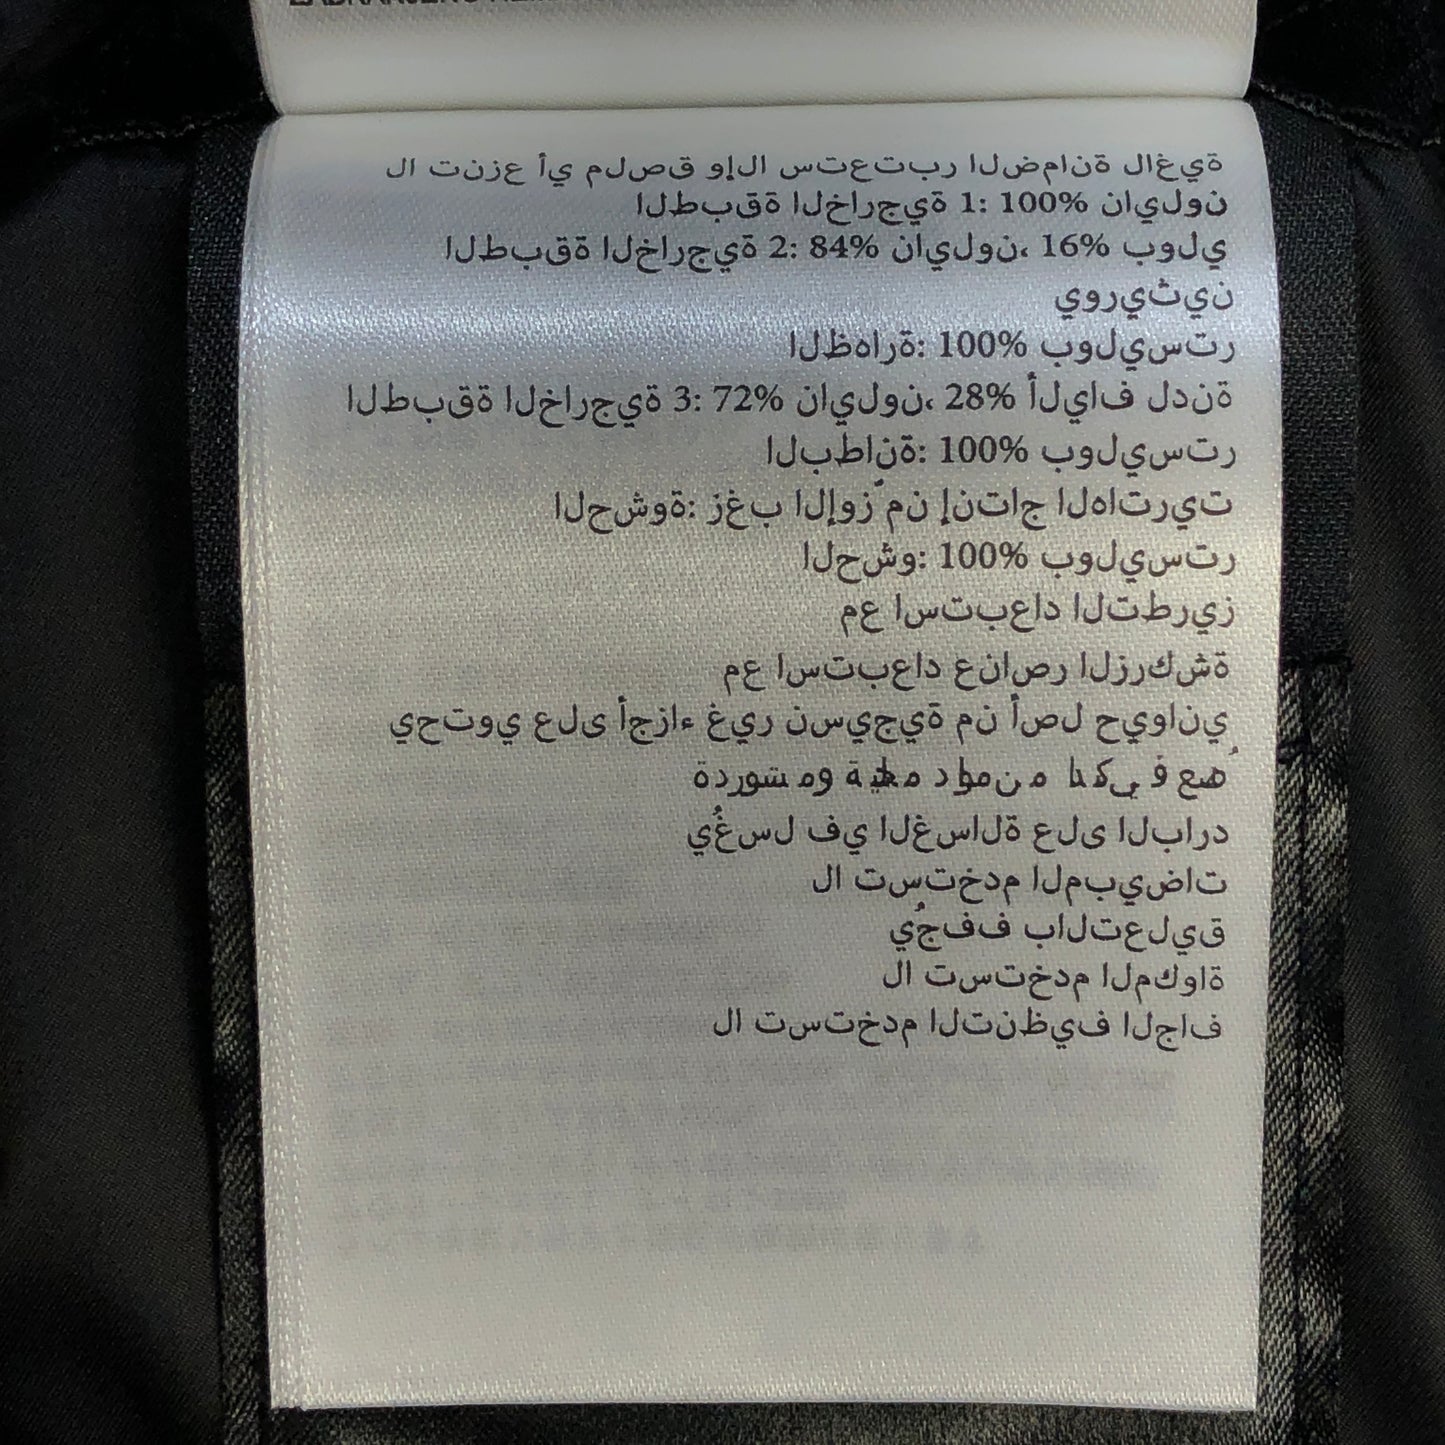 لا تنزع أي ملصق وإلا ستعتبر الضمانة لاغية
الطبقة الخارجية 1: 100% نايلون
الطبقة الخارجية 2: 84% نايلون، 16% بولي
يوريثين
الظهارة: 100% بوليستر
الطبقة الخارجية 3: 72% نايلون، 28% ألياف لدنة
البطانة: 100% بوليستر
الحشوة: زغب الإوز من إنتاج الهاتريت
الحشو: 100% بوليستر
مع استبعاد التطريز
مع استبعاد عناصر الزركشة
يحتوي على أجزاء غير نسيجية من أصل حيواني
صُنع في كندا من مواد محلية ومستوردة
يُغسل في الغسالة على البارد
لا تستخدم المبيضات
يُجفف بالتعليق
لا تستخدم المكواة
لا تستخدم التنظيف الجاف